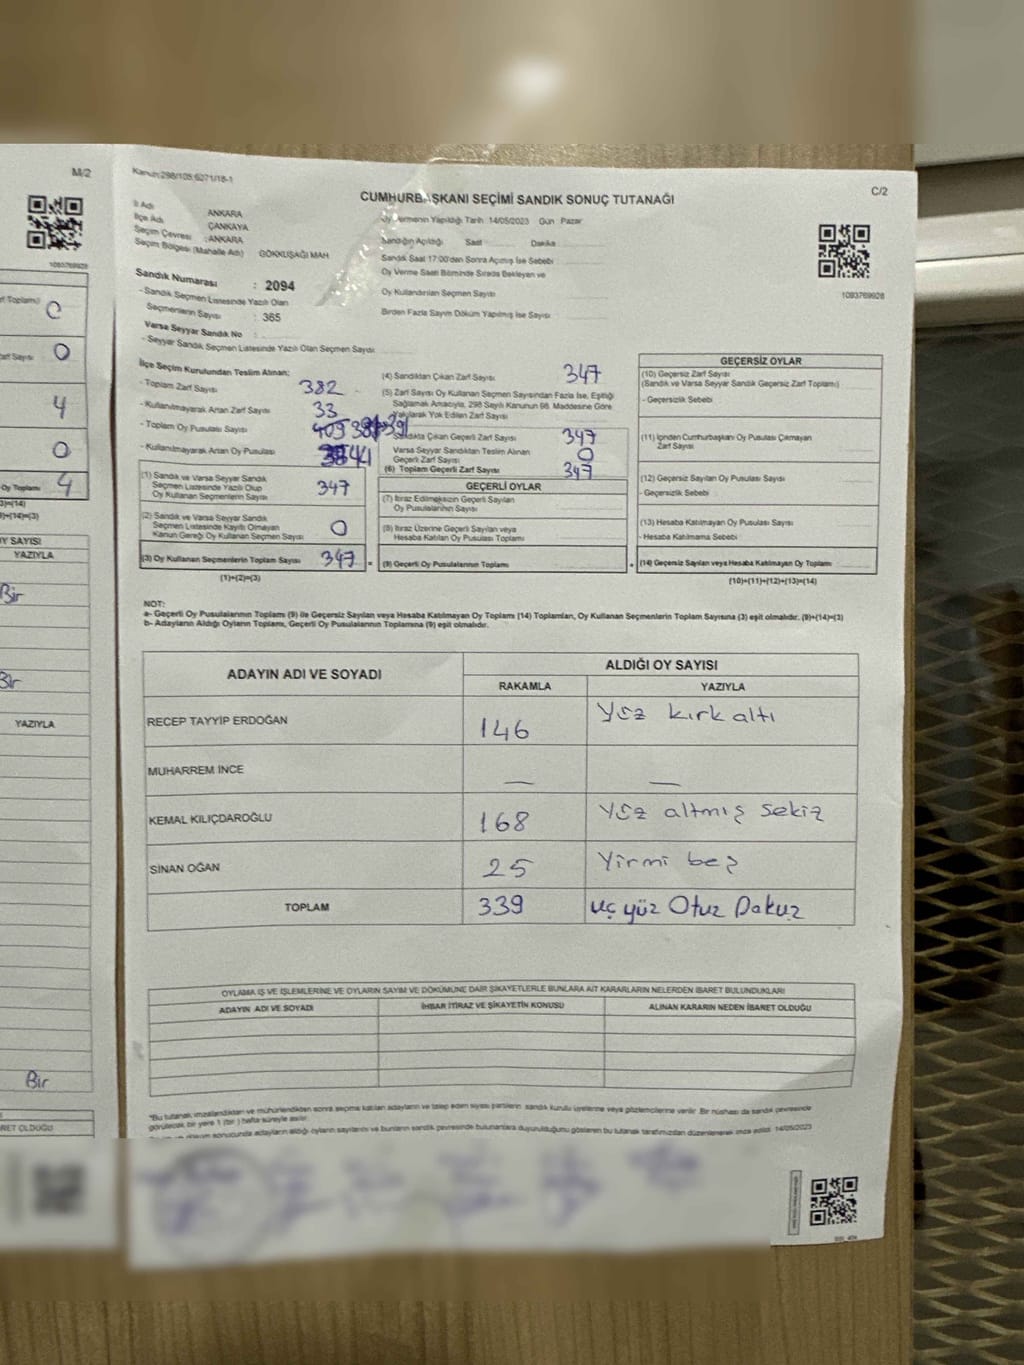 M/2
1093769928
Toplamı)
0
Zarf Sayısı
0
4
0
Oy Toplamı
4
3)=(14)
)+(14)=(3)
OY SAYISI
YAZIYLA
Bir
Bir
YAZIYLA
Bir
NET OLDUĞU
Kanun:298/105;6271/18-1
C/2
CUMHURBAŞKANI SEÇİMİ SANDIK SONUÇ TUTANAĞI
İl Adı ANKARA
İlçe Adı ÇANKAYA
Seçim Çevresi : ANKARA
Seçim Bölgesi (Mahalle Adı) GÖKKUŞAĞI MAH
Sandık Numarası : 2094
- Sandık Seçmen Listesinde Yazılı Olan
Seçmenlerin Sayısı : 365
Varsa Seyyar Sandık No :
- Seyyar Sandık Seçmen Listesinde Yazılı Olan Seçmen Sayısı:
Oy Vermenin Yapıldığı Tarih 14/05/2023 Gün Pazar
Sandığın Açıldığı Saat Dakika
Sandık Saat 17:00'den Sonra Açılmış İse Sebebi
Oy Verme Saati Bitiminde Sırada Bekleyen ve
Oy Kullandırılan Seçmen Sayısı
Birden Fazla Sayım Döküm Yapılmış İse Sayısı
1093769928
İlçe Seçim Kurulundan Teslim Alınan:
- Toplam Zarf Sayısı 382
- Kullanılmayarak Artan Zarf Sayısı 33
- Toplam Oy Pusulası Sayısı
- Kullanılmayarak Artan Oy Pusulası 41
(1) Sandık ve Varsa Seyyar Sandık
Seçmen Listesinde Yazılı Olup
Oy Kullanan Seçmenlerin Sayısı 347
(2) Sandık ve Varsa Seyyar Sandık
Seçmen Listesinde Kayıtlı Olmayan
Kanun Gereği Oy Kullanan Seçmen Sayısı 0
(3) Oy Kullanan Seçmenlerin Toplam Sayısı 347 =
(1)+(2)=(3)
(4) Sandıktan Çıkan Zarf Sayısı 347
(5) Zarf Sayısı Oy Kullanan Seçmen Sayısından Fazla İse, Eşitliği
Sağlamak Amacıyla, 298 Sayılı Kanunun 98. Maddesine Göre
Yakılarak Yok Edilen Zarf Sayısı
Sandıkta Çıkan Geçerli Zarf Sayısı 347
Varsa Seyyar Sandıktan Teslim Alınan
Geçerli Zarf Sayısı 0
(6) Toplam Geçerli Zarf Sayısı 347
GEÇERLİ OYLAR
(7) İtiraz Edilmeksizin Geçerli Sayılan
Oy Pusulalarının Sayısı
(8) İtiraz Üzerine Geçerli Sayılan veya
Hesaba Katılan Oy Pusulası Toplamı
(9) Geçerli Oy Pusulalarının Toplamı +
GEÇERSİZ OYLAR
(10) Geçersiz Zarf Sayısı
(Sandık ve Varsa Seyyar Sandık Geçersiz Zarf Toplamı)
- Geçersizlik Sebebi
(11) İçinden Cumhurbaşkanı Oy Pusulası Çıkmayan
Zarf Sayısı
(12) Geçersiz Sayılan Oy Pusulası Sayısı
- Geçersizlik Sebebi
(13) Hesaba Katılmayan Oy Pusulası Sayısı
- Hesaba Katılmama Sebebi
(14) Geçersiz Sayılan veya Hesaba Katılmayan Oy Toplamı
(10)+(11)+(12)+(13)=(14)
NOT:
a- Geçerli Oy Pusulalarının Toplamı (9) ile Geçersiz Sayılan veya Hesaba Katılmayan Oy Toplamı (14) Toplamları, Oy Kullanan Seçmenlerin Toplam Sayısına (3) eşit olmalıdır. (9)+(14)=(3)
b- Adayların Aldığı Oyların Toplamı, Geçerli Oy Pusulalarının Toplamına (9) eşit olmalıdır.
ADAYIN ADI VE SOYADI
ALDIĞI OY SAYISI
RAKAMLA YAZIYLA
RECEP TAYYİP ERDOĞAN 146 Yüz kırk altı
MUHARREM İNCE — —
KEMAL KILIÇDAROĞLU 168 Yüz altmış sekiz
SİNAN OĞAN 25 Yirmi beş
TOPLAM 339 Üç yüz Otuz Dokuz
OYLAMA İŞ VE İŞLEMLERİNE VE OYLARIN SAYIM VE DÖKÜMÜNE DAİR ŞİKAYETLERLE BUNLARA AİT KARARLARIN NELERDEN İBARET BULUNDUKLARI
ADAYIN ADI VE SOYADI İHBAR İTİRAZ VE ŞİKAYETİN KONUSU ALINAN KARARIN NEDEN İBARET OLDUĞU
*Bu tutanak imzalandıktan ve mühürlendikten sonra seçime katılan adayların ve talep eden siyasi partilerin sandık kurulu üyelerine veya gözlemcilerine verilir. Bir nüshası da sandık çevresinde
görülecek bir yere 1 (bir ) hafta süreyle asılır.
sonucunda adayların aldığı oyların sayılarını ve bunların sandık çevresinde bulunanlara duyurulduğunu gösteren bu tutanak tarafımızdan düzenlenerek imza edildi. 14/05/2023